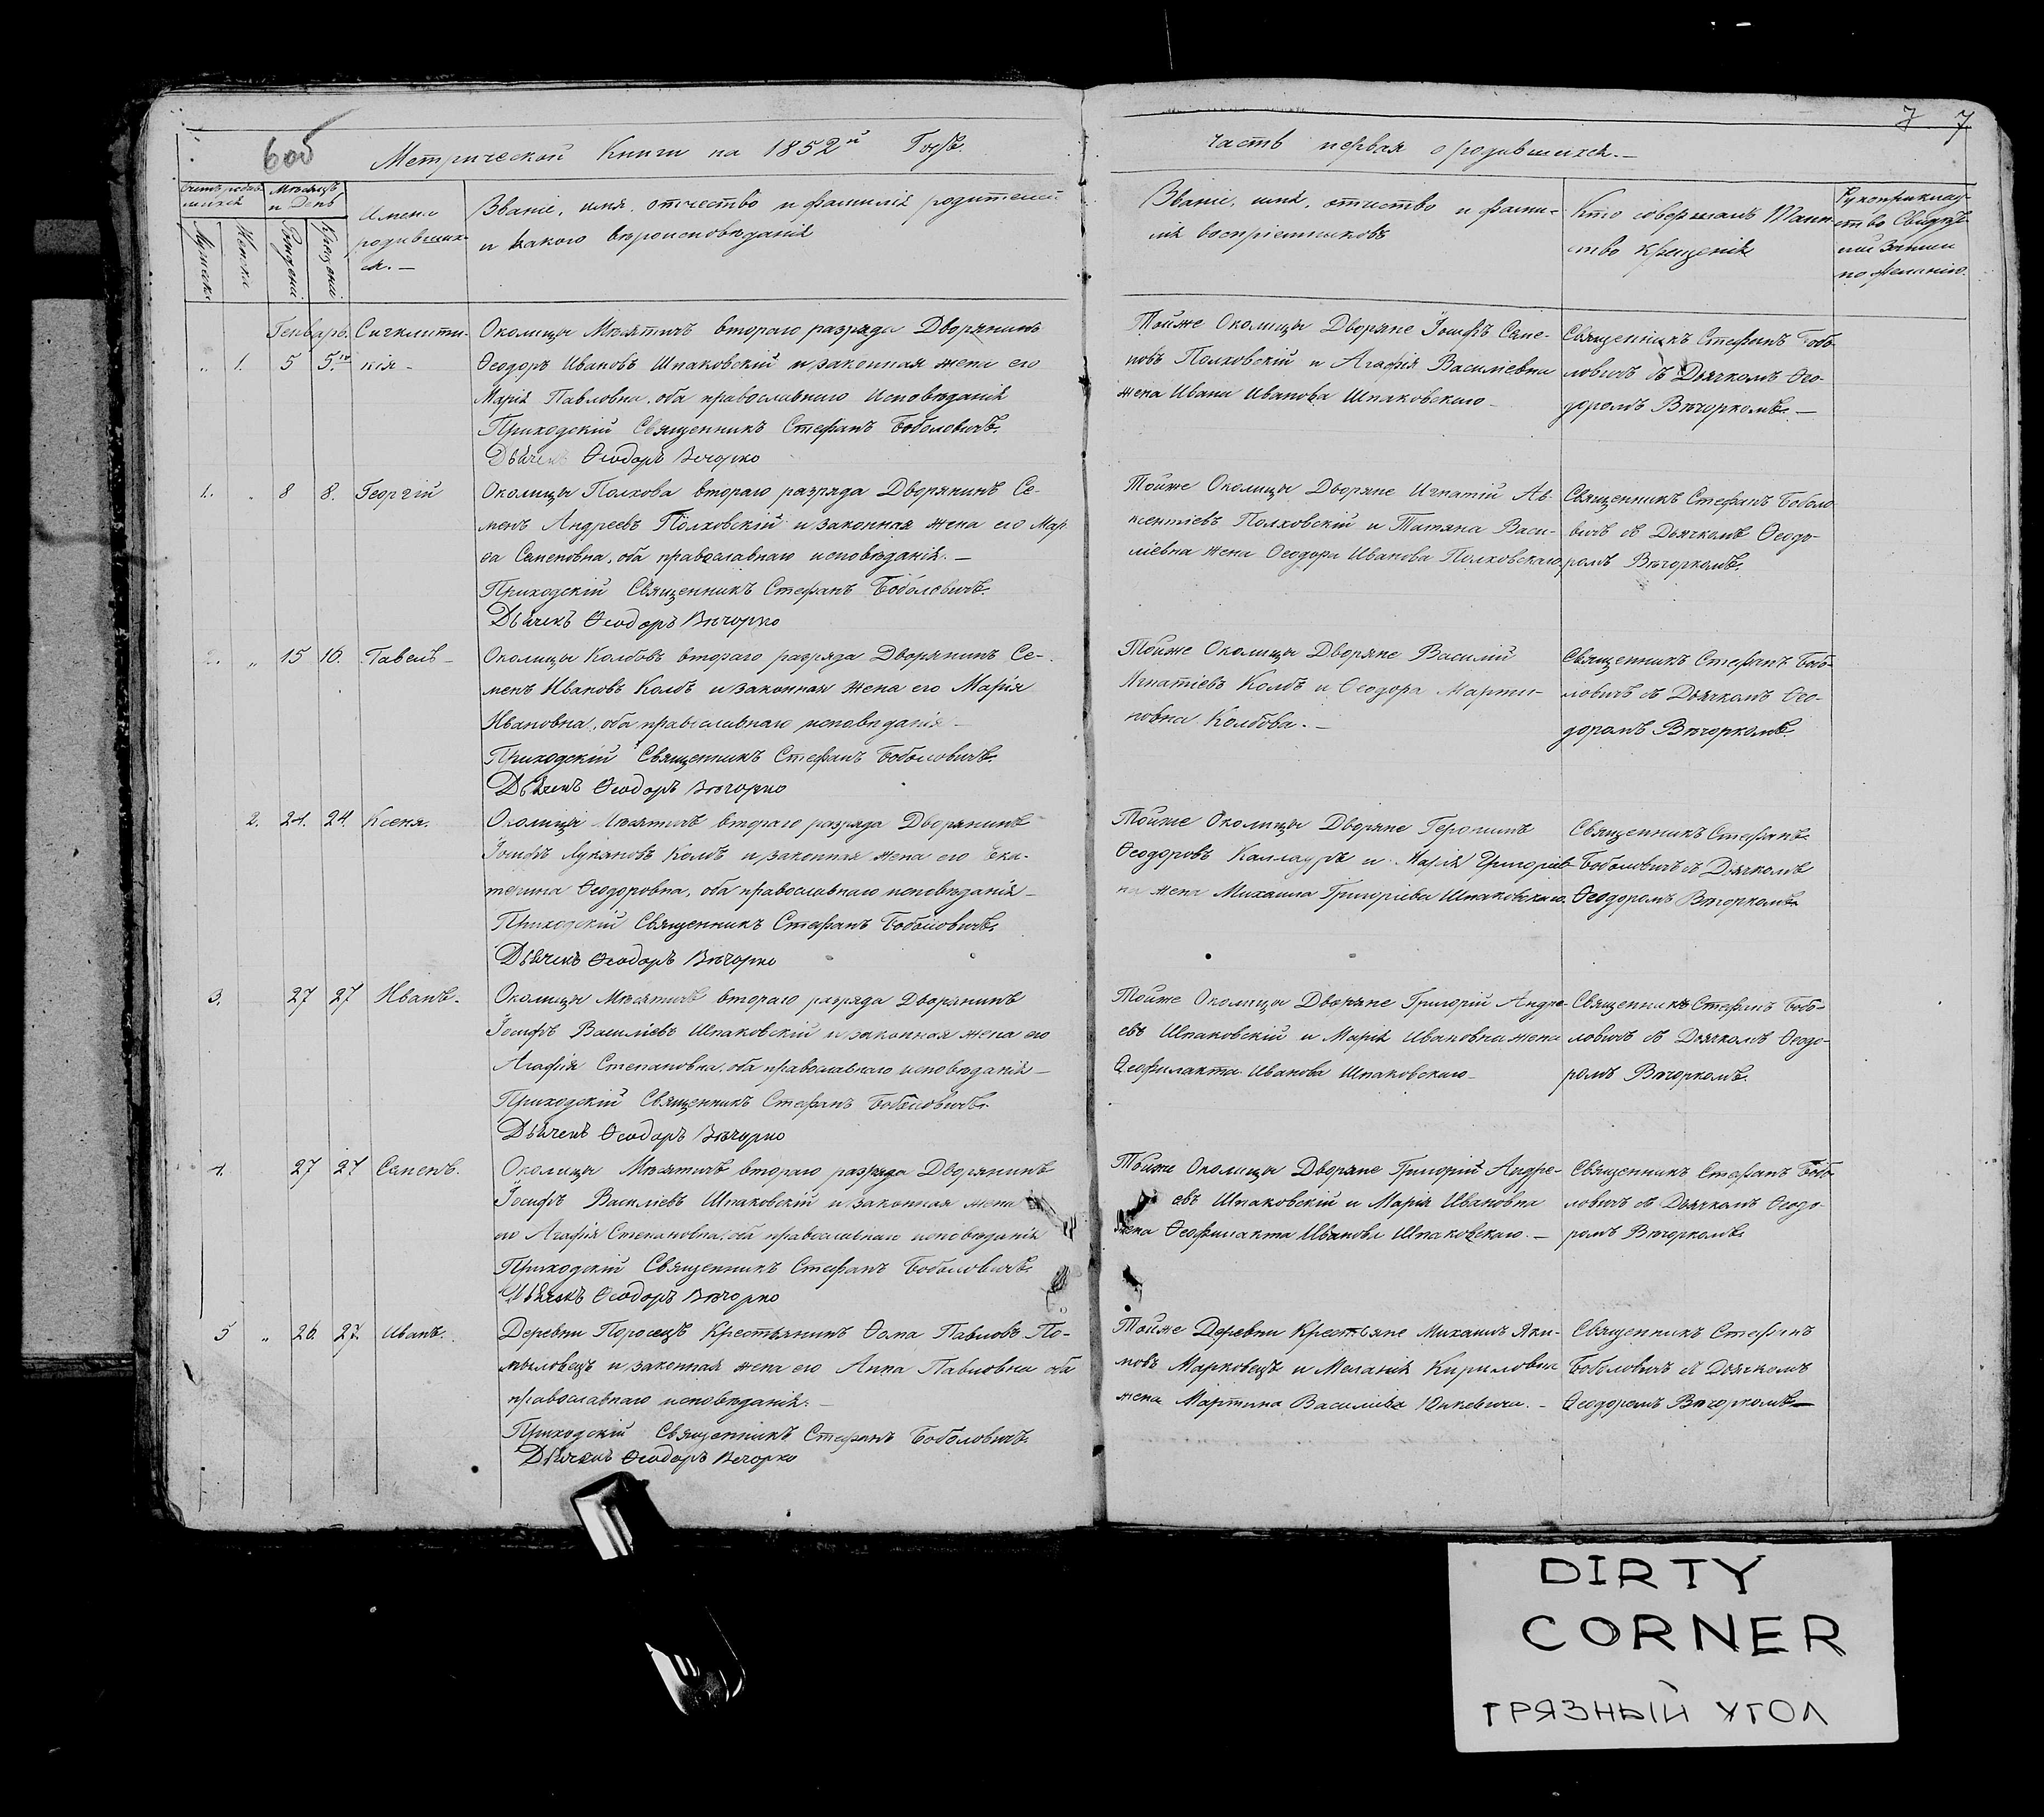 7 7
6об
Метрической Книги на 1852й Годъ.
часть первая о родившихся.—
Мѣсяцъ
и День
Имена
родивших-
ся.—
Званіе, имя, отчество и фамилія родителей
и какого вѣроисповѣданія
Званіе, имя, отчество и фами-
лія воспріемниковъ
Кто совершалъ Таин-
ство Крещенія
Рукоприклад-
ство Свидѣте-
лей Записи
по желанію.
Мужеска
Женска
Рожденія
Крещенія
Генварь. Сигклити-
" 1. 5 5.го кія-
Околицы Мѣлятичъ втораго разряда Дворянинъ
Ѳеодоръ Ивановъ Шпаковскій и законная жена его
Марія Павловна, оба православнаго Исповѣданія
Приходскій Священникъ Стефанъ Боболовичъ.
Дьячекъ Ѳеодоръ Вечорко
Тойже Околицы Дворяне Іосифъ Семе-
новъ Полховскій и Агафія Василіевна
жена Ивана Иванова Шпаковскаго-
Священникъ Стефанъ Бобо-
ловичъ съ Дьячкомъ Ѳео-
доромъ Вѣчоркомъ.—
1. " 8 8. Георгій
Околицы Полхова втораго разряда Дворянинъ Се-
менъ Андреевъ Полховскій и законная жена его Мар
ѳа Семеновна, оба православнаго исповѣданія.—
Приходскій Священникъ Стефанъ Боболовичъ.
Дьячекъ Ѳеодоръ Вѣчорко
Тойже Околицы Дворяне Игнатій Ав-
ксентіевъ Полховскій и Татяна Васи-
ліевна жена Ѳеодора Иванова Полховскаго
Священникъ Стефанъ Боболо-
вичъ съ Дьячкомъ Ѳеодо-
ромъ Вѣчоркомъ.
2. " 15 16. Павелъ-
Околицы Колбовъ втораго разряда Дворянинъ Се-
менъ Ивановъ Колбъ и законная жена его Марія
Ивановна, оба православнаго исповѣданія-
Приходскій Священникъ Стефанъ Боболовичъ.
Дьячекъ Ѳеодоръ Вѣчорко
Тойже Околицы Дворяне Василій
Игнатіевъ Колбъ и Ѳеодора Марти-
новна Колбова.—
Священникъ Стефанъ Бобо-
ловичъ съ Дьячкомъ Ѳео-
доромъ Вѣчоркомъ.
2. 24. 24. Ксеня.
Околицы Мѣлятичъ втораго разряда Дворянинъ
Іосифъ Лукяновъ Колбъ и законная жена его Ека-
терина Ѳеодоровна, оба православнаго исповѣданія-
Приходскій Священникъ Стефанъ Боболовичъ.
Дьячекъ Ѳеодоръ Вѣчорко
Тойже Околицы Дворяне Геронимъ
Ѳеодоровъ Каллауръ и Марія Григорiев-
на жена Михаила Григоріева Шпаковскаго.
Священникъ Стефанъ
Боболовичъ съ Дьячкомъ
Ѳеодоромъ Вѣчоркомъ
3. 27 27 Иванъ-
Околицы Мѣлятичъ втораго разряда Дворянинъ
Іосифъ Василіевъ Шпаковскій и законная жена его
Агафія Степановна, оба православнаго исповѣданія-
Приходскій Священникъ Стефанъ Боболовичъ.
Дьячекъ Ѳеодоръ Вѣчорко
Тойже Околицы Дворяне Григорій Андре-
евъ Шпаковскій и Марія Ивановна жена
Ѳеофилакта Иванова Шпаковскаго-
Священникъ Стефанъ Бобо-
ловичъ съ Дьячкомъ Ѳеодо-
ромъ Вѣчоркомъ.
4. 27 27 Семенъ.
Околицы Мѣлятичъ втораго разряда Дворянинъ
Іосифъ Василіевъ Шпаковскій и законная жена
его Агафія Степановна, оба православнаго исповѣданія
Приходскій Священникъ Стефанъ Боболовичъ.
Дьячекъ Ѳеодоръ Вѣчорко
Тойже Околицы Дворяне Григорій Андре-
евъ Шпаковскій и Марія Ивановна
жена Ѳеофилакта Иванова Шпаковскаго.—
Священникъ Стефанъ Бобо-
ловичъ съ Дьячкомъ Ѳеодо-
ромъ Вѣчоркомъ.
5 " 26. 27. Иванъ.
Деревни Поросецъ Крестьянинъ Ѳома Павловъ По-
мыловецъ и законная жена его Анна Павловна оба
православнаго исповѣданія.—
Приходскій Священникъ Стефанъ Боболовичъ.
Дьячекъ Ѳеодоръ Вечорко
Тойже Деревни Крестьяне Михаилъ Яки-
мовъ Марковецъ и Меланія Кириловна
жена Мартина Василіева Юцкевича.-
Священникъ Стефанъ
Боболовичъ съ Дьячкомъ
Ѳеодоромъ Вѣчоркомъ—
DIRTY
CORNER
ГРЯЗНЫЙ УГОЛ